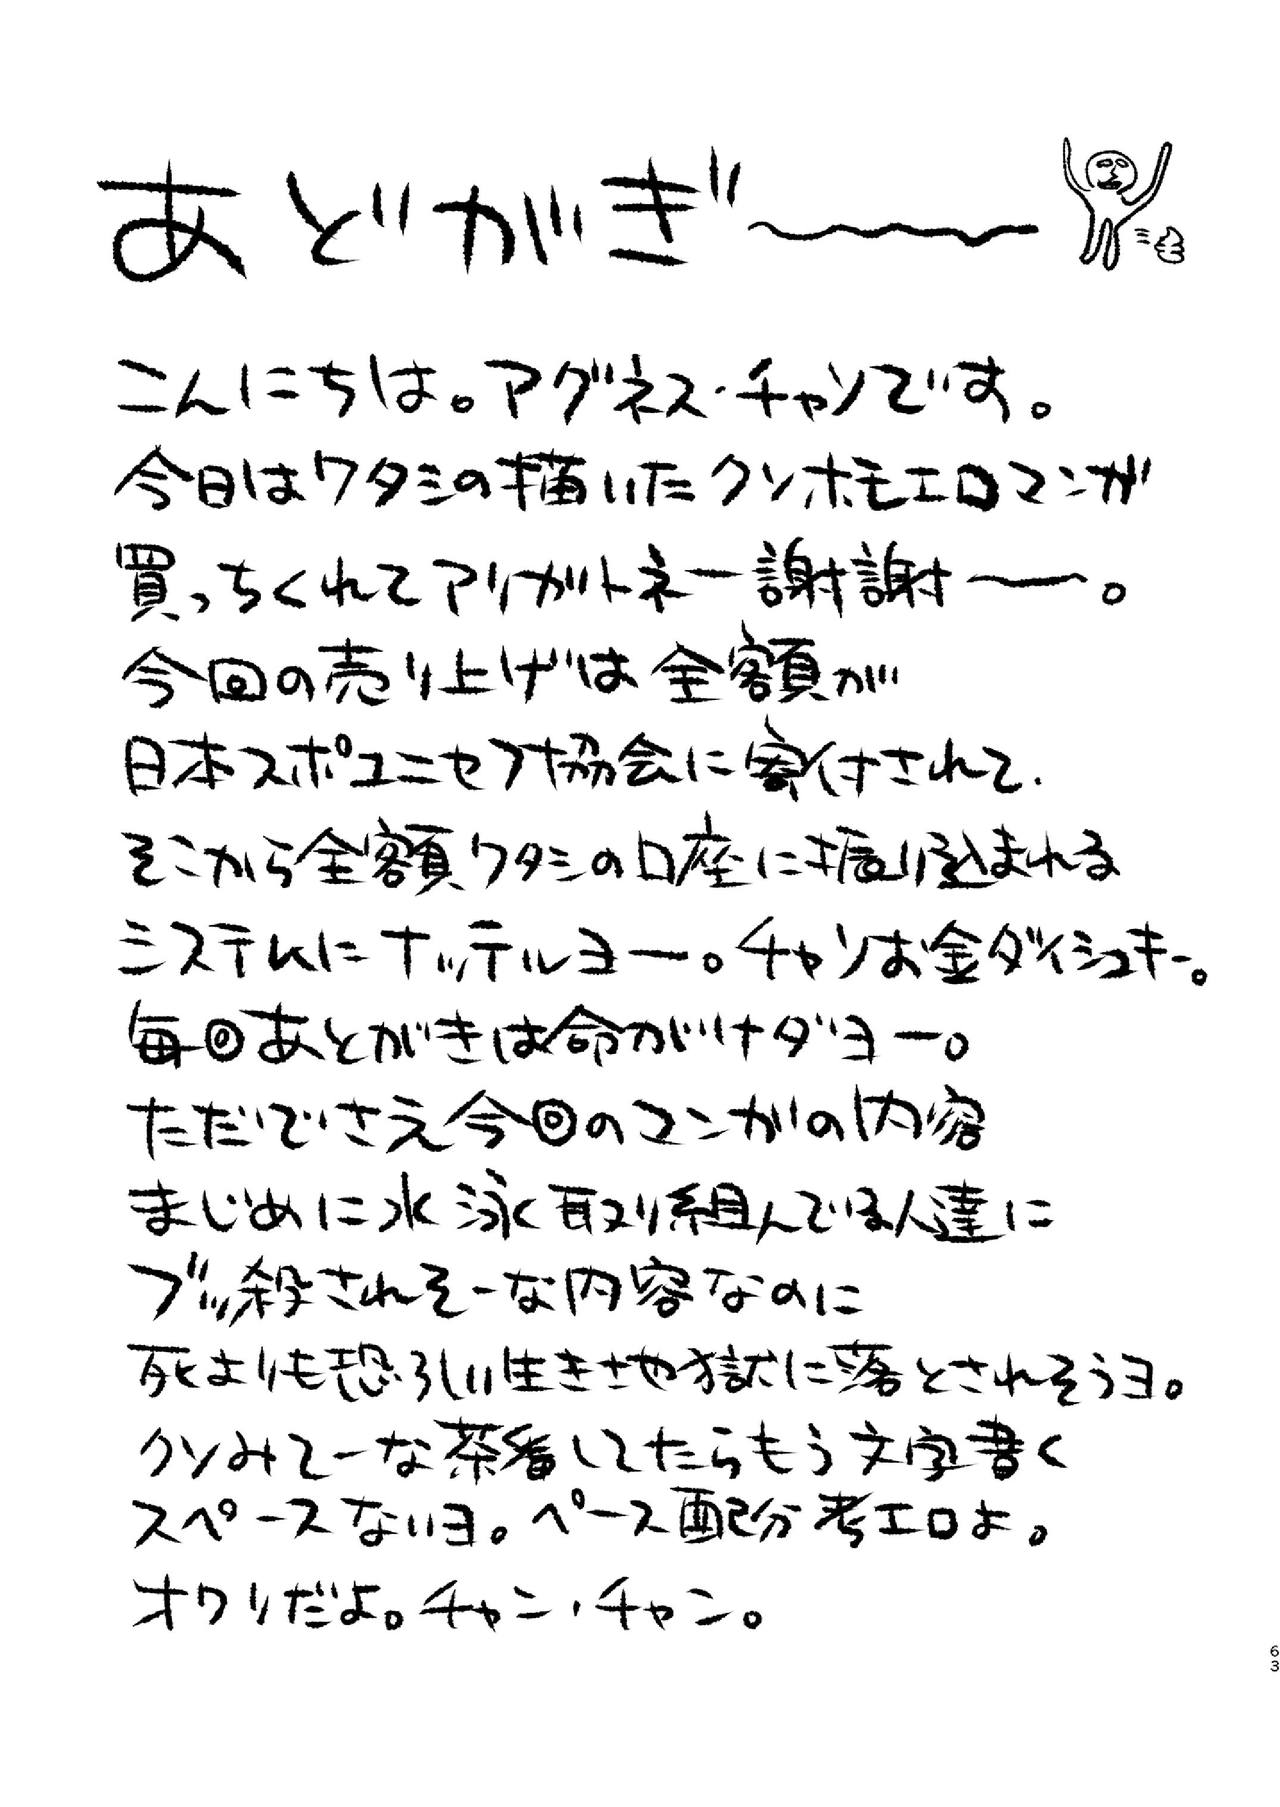 あどがぎ゛〜〜〜
こんにちは。アグネス・チャンです。
今日はワタシの描いたクソホモエロマンガ
買っちくれてアリガトネー謝謝〜。
今回の売り上げは全額が
日本スポユニセフ協会に寄付されて、
そこから全額ワタシの口座に振り込まれる
システムにナッテルヨー。チャンお金ダイシュキー。
毎回あとがきは命がけダヨー。
ただでさえ今回のマンガの内容
まじめに水泳取り組んでいる人達に
ブッ殺されそーな内容なのに
死よりも恐ろしい生きさせ獄に落とされそうヨ。
クソみてーな茶番してたらもう文字書く
スペースないヨ。ペース配分考エロよ。
オワリだよ。チャン・チャン。
63